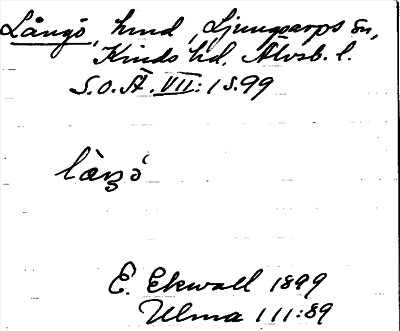 Långö, hmd, Ljungsarps sn,
Kinds hd, Älvsb. l.
S.O.Ä. VII: 1 s. 99
E. Ekwall 1899
Ulma 111:89